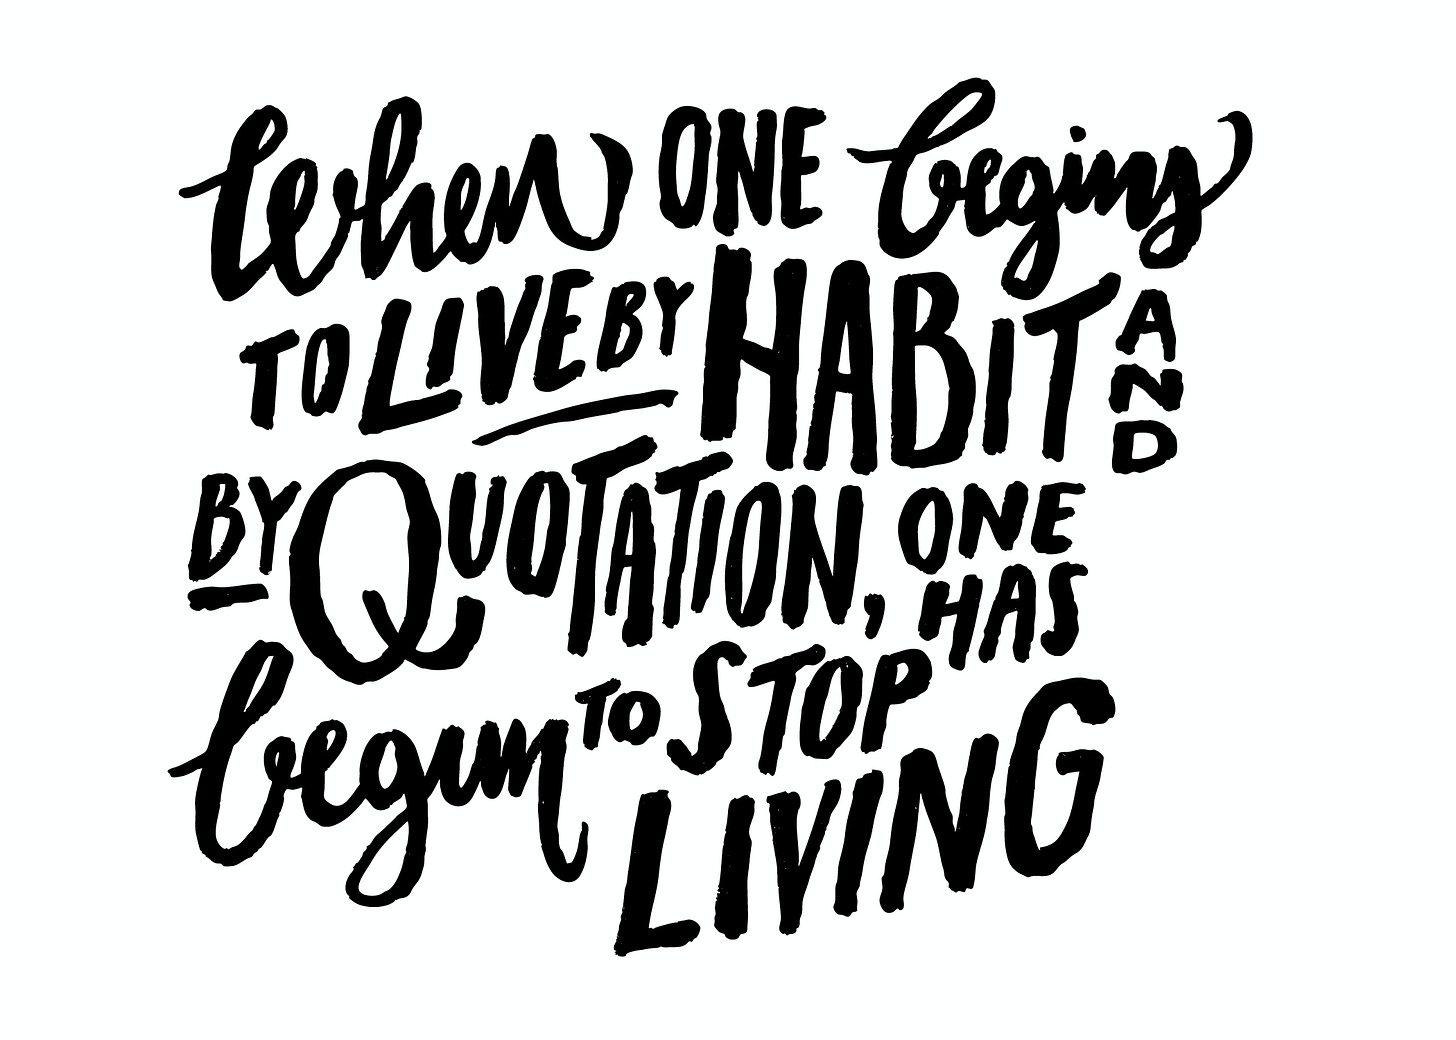 When ONE begins
TO LIVE BY HABIT AND
BY QUOTATION, ONE
HAS
begun TO STOP
LIVING